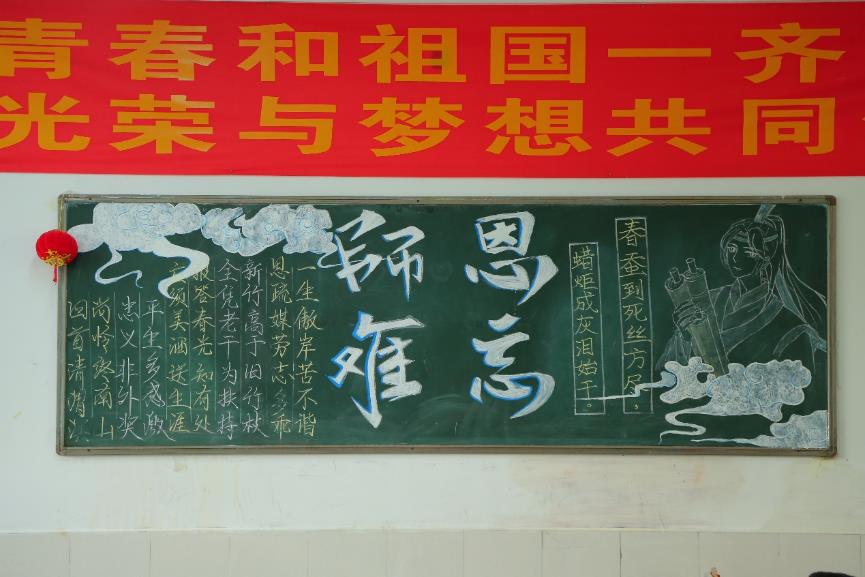 青春和祖国一齐
光荣与梦想共同
师恩
难忘
春蚕到死丝方尽。
蜡炬成灰泪始干。
一生傲岸苦不谐
恩疏媒劳志多乖
新竹高于旧竹枝
全凭老干为扶持
报答春光知有处
应须美酒送生涯
平生多感激
忠义非外奖
尚怜终南山
回首清渭滨